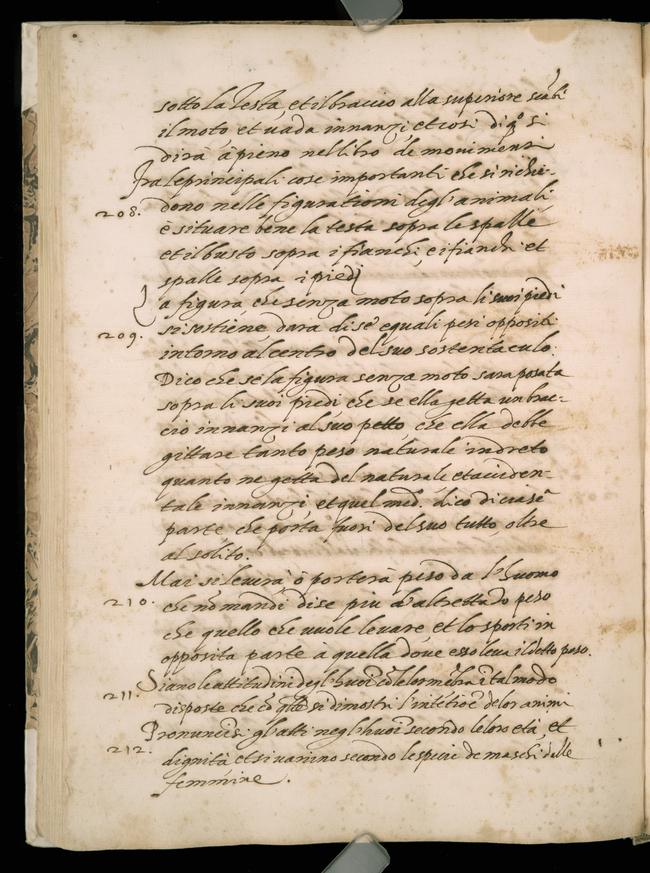 sotto la Testa, et il braccio alla superiore
il moto et vada innanzi, et cosi di qo. si
dirà à pieno nel libro de movimenti
Fra le principali cose importanti che si richie-
208. dono nelle figurationi degl'animali
è situare bene la testa sopra le spalle
et il busto sopra i fianchi, e i fianchi et
spalle sopra i piedi
La figura, che senza moto sopra li suoi piedi
209. si sostiene, dara di sè equali pesi oppositi
intorno al centro del suo sostentaculo.
Dico che se la figura senza moto sara posata
sopra li suoi piedi, che se ella getta un brac-
cio innanzi al suo petto, che ella debbe
gittare tanto peso naturale indreto
quanto ne getta del naturale et acciden-
tale innanzi, et quel med. dico di ciasca
parte, che porta fuori del suo tutto, oltre
al solito.
Mai si leverà, ò porterà peso da l'huomo
210. che nō mandi di se piu d'altrettado peso
che quello che vuole levare et lo sporti in
opposita parte à quella dove esso leva il detto peso.
211. Siano le attitudini degl'huoī cō le lor mēbra ī tal modo
disposte che cō qlle si dimostri l'intētiōe de lor animi
Pronuncisi gl'atti negl'huoī secondo le loro età, et
212. dignità et si varino secondo le specie de maschi delle
femmine.